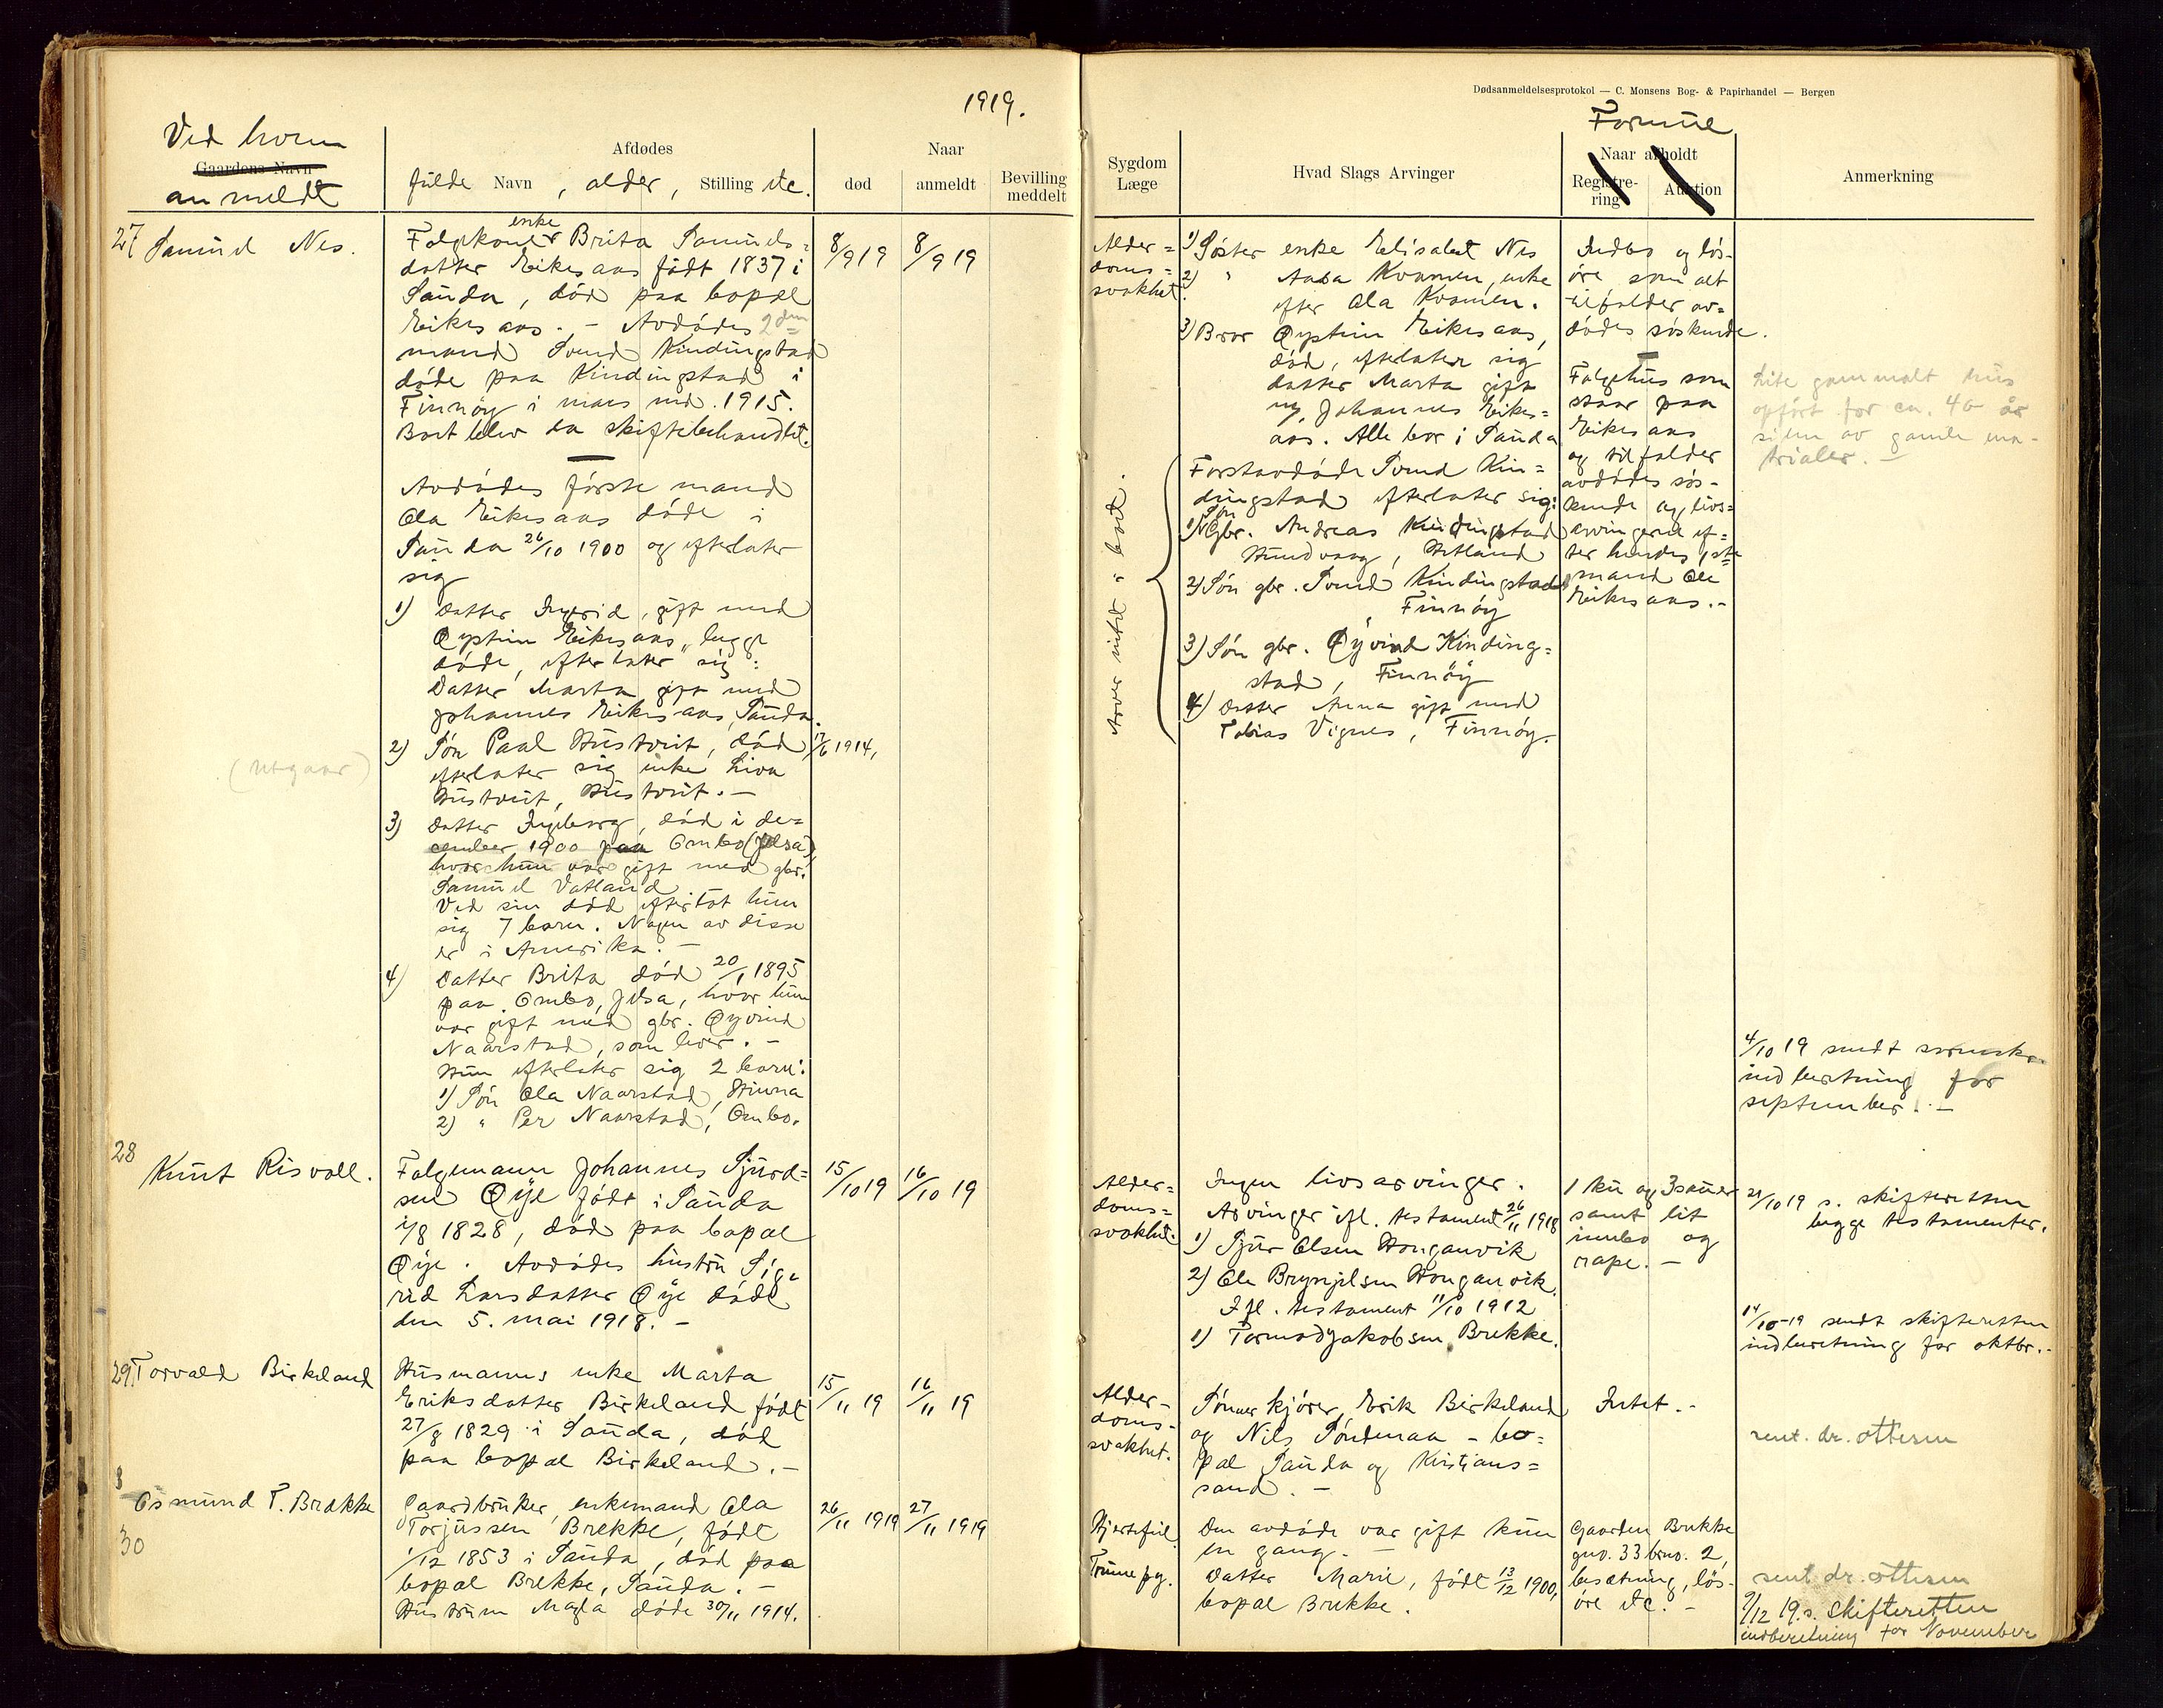 1919.
Ved hvem
Gaardens Navn
anmeldt
Afdødes
fulde Navn, alder, Stilling etc.
Naar
død
anmeldt
Bevilling
meddelt
27 Samuel Nes.
Folgekone enke Brita Samuels-
datter Eikesaas født 1837 i
Sauda, død paa bopæl
Eikesaas. - Avdødes 2den
mand Svend Kindingstad
døde paa Kindingstad i
Finnøy i mars md. 1915.
Boet blev da skiftebehandlet.
8/9 19
8/9 19
Avdødes første mand
Ola Eikesaas døde i
Sauda 26/10 1900 og efterlater
sig
1) Datter Ingerid, gift med
Øystein Eikesaas, begge
døde, efterlater sig:
Datter Marta gift med
Johannes Eikesaas, Sauda.
2) Søn Paal Hustveit, død 17/6 1914,
efterlater sig enke Siva
Hustveit, Hustveit. -
(utgaar)
3) Datter Ingeborg, død i de-
cember 1900 paa Ombo (Jelsa),
hvor hun var gift med gbr.
Samuel Vatland
Ved sin død efterlot hun
sig 7 barn. Nogen av disse
er i Amerika. -
4) Datter Brita død 20/1 1895
paa Ombo, Jelsa, hvor hun
var gift med gbr. Øyvind
Naarstad, som lever. -
Hun efterlater sig 2 barn:
1) Søn Ola Naarstad, Hinna
2) " Per Naarstad, Ombo.
28
Knut Risvoll.
Folgemann Johannes Sjurd-
sen Øye født i Sauda
1/8 1828, død paa bopæl
Øye. Avdødes hustru Sig-
rid Larsdatter Øye døde
den 5. mai 1918. -
15/10 19
16/10 19
29. Torvald Birkeland
Husmanns enke Marta
Eriksdatter Birkeland født
27/8 1829 i Sauda, død
paa bopæl Birkeland. -
15/11 19
16/11 19
Osmund T. Brække
30
Gaardbruker, enkemand Ola
Torjussen Brekke, født
1/12 1853 i Sauda, død paa
bopæl Brekke, Sauda. -
Hustruen Magla døde 30/11 1914.
26/11 1919
27/11 1919
Dødsanmeldelsesprotokol — C. Monsens Bog- & Papirhandel — Bergen
Sygdom
Læge
Hvad Slags Arvinger
Formue
Naar afholdt
Registre-
ring
Auktion
Anmerkning
Alder-
doms-
svakhet.
1) Søster enke Elisabet Nes
2) " Anna Kvamen, enke
efter Ola Kvamen.
3) Bror Øystein Eikesaas,
død, efterlater sig
datter Marta gift
m. Johannes Eikes-
aas. Alle bor i Sauda
Arver intet i boet.
Forstavdøde Svend Kin-
dingstad efterlater sig:
1) Søn Gbr. Andreas Kindingstad
Hundvaag, Hetland
2) Søn gbr. Svend Kindingstad
Finnøy
3) Søn gbr. Øyvind Kinding-
stad, Finnøy
4) Datter Anna gift med
Tobias Vignes, Finnøy.
Indbo og løs-
øre, som alt
tilfalder av-
dødes søskende.
Folgehus som
staar paa
Eikesaas
og tilfalder
avdødes søs-
kende og livs-
arvingerne ef-
ter hendes 1ste
mand Ole
Eikesaas. -
Lite gammalt hus
opført for ca. 40 år
siden av gamle ma-
trialer. -
4/10 19 sendt
indberetning for
september. -
Alder-
doms-
svakhet.
Ingen livsarvinger.
Arvinger ifl. testament 26/11 1918
1) Sjur Olsen Honganvik
2) Ole Brynjelsen Honganvik.
Ifl. testament 11/10 1912
1) Tormod Jakobsen Brekke.
1 ku og 3 sauer
samt lit
innbo og
rape. -
21/10 19 s. skifteretten
begge testamenter.
14/10-19 sendt skifteretten
indberetning for oktbr. -
Alder-
doms-
svakhet.
Sønner kjører Erik Birkeland
og Nils Søndenaa - bo-
pæl Sauda og Kristians-
sand. -
Intet. -
sent. dr. Ottesen
Hjertefeil
Den avdøde var gift kun
en gang. -
Datter Marie, født 13/12 1900,
bopæl Brekke.
Gaarden Brekke
gno. 33 bno. 2,
besætning, løs-
øre etc. -
sent dr. Ottesen
9/12 19. s. Skifteretten
indberetning for November